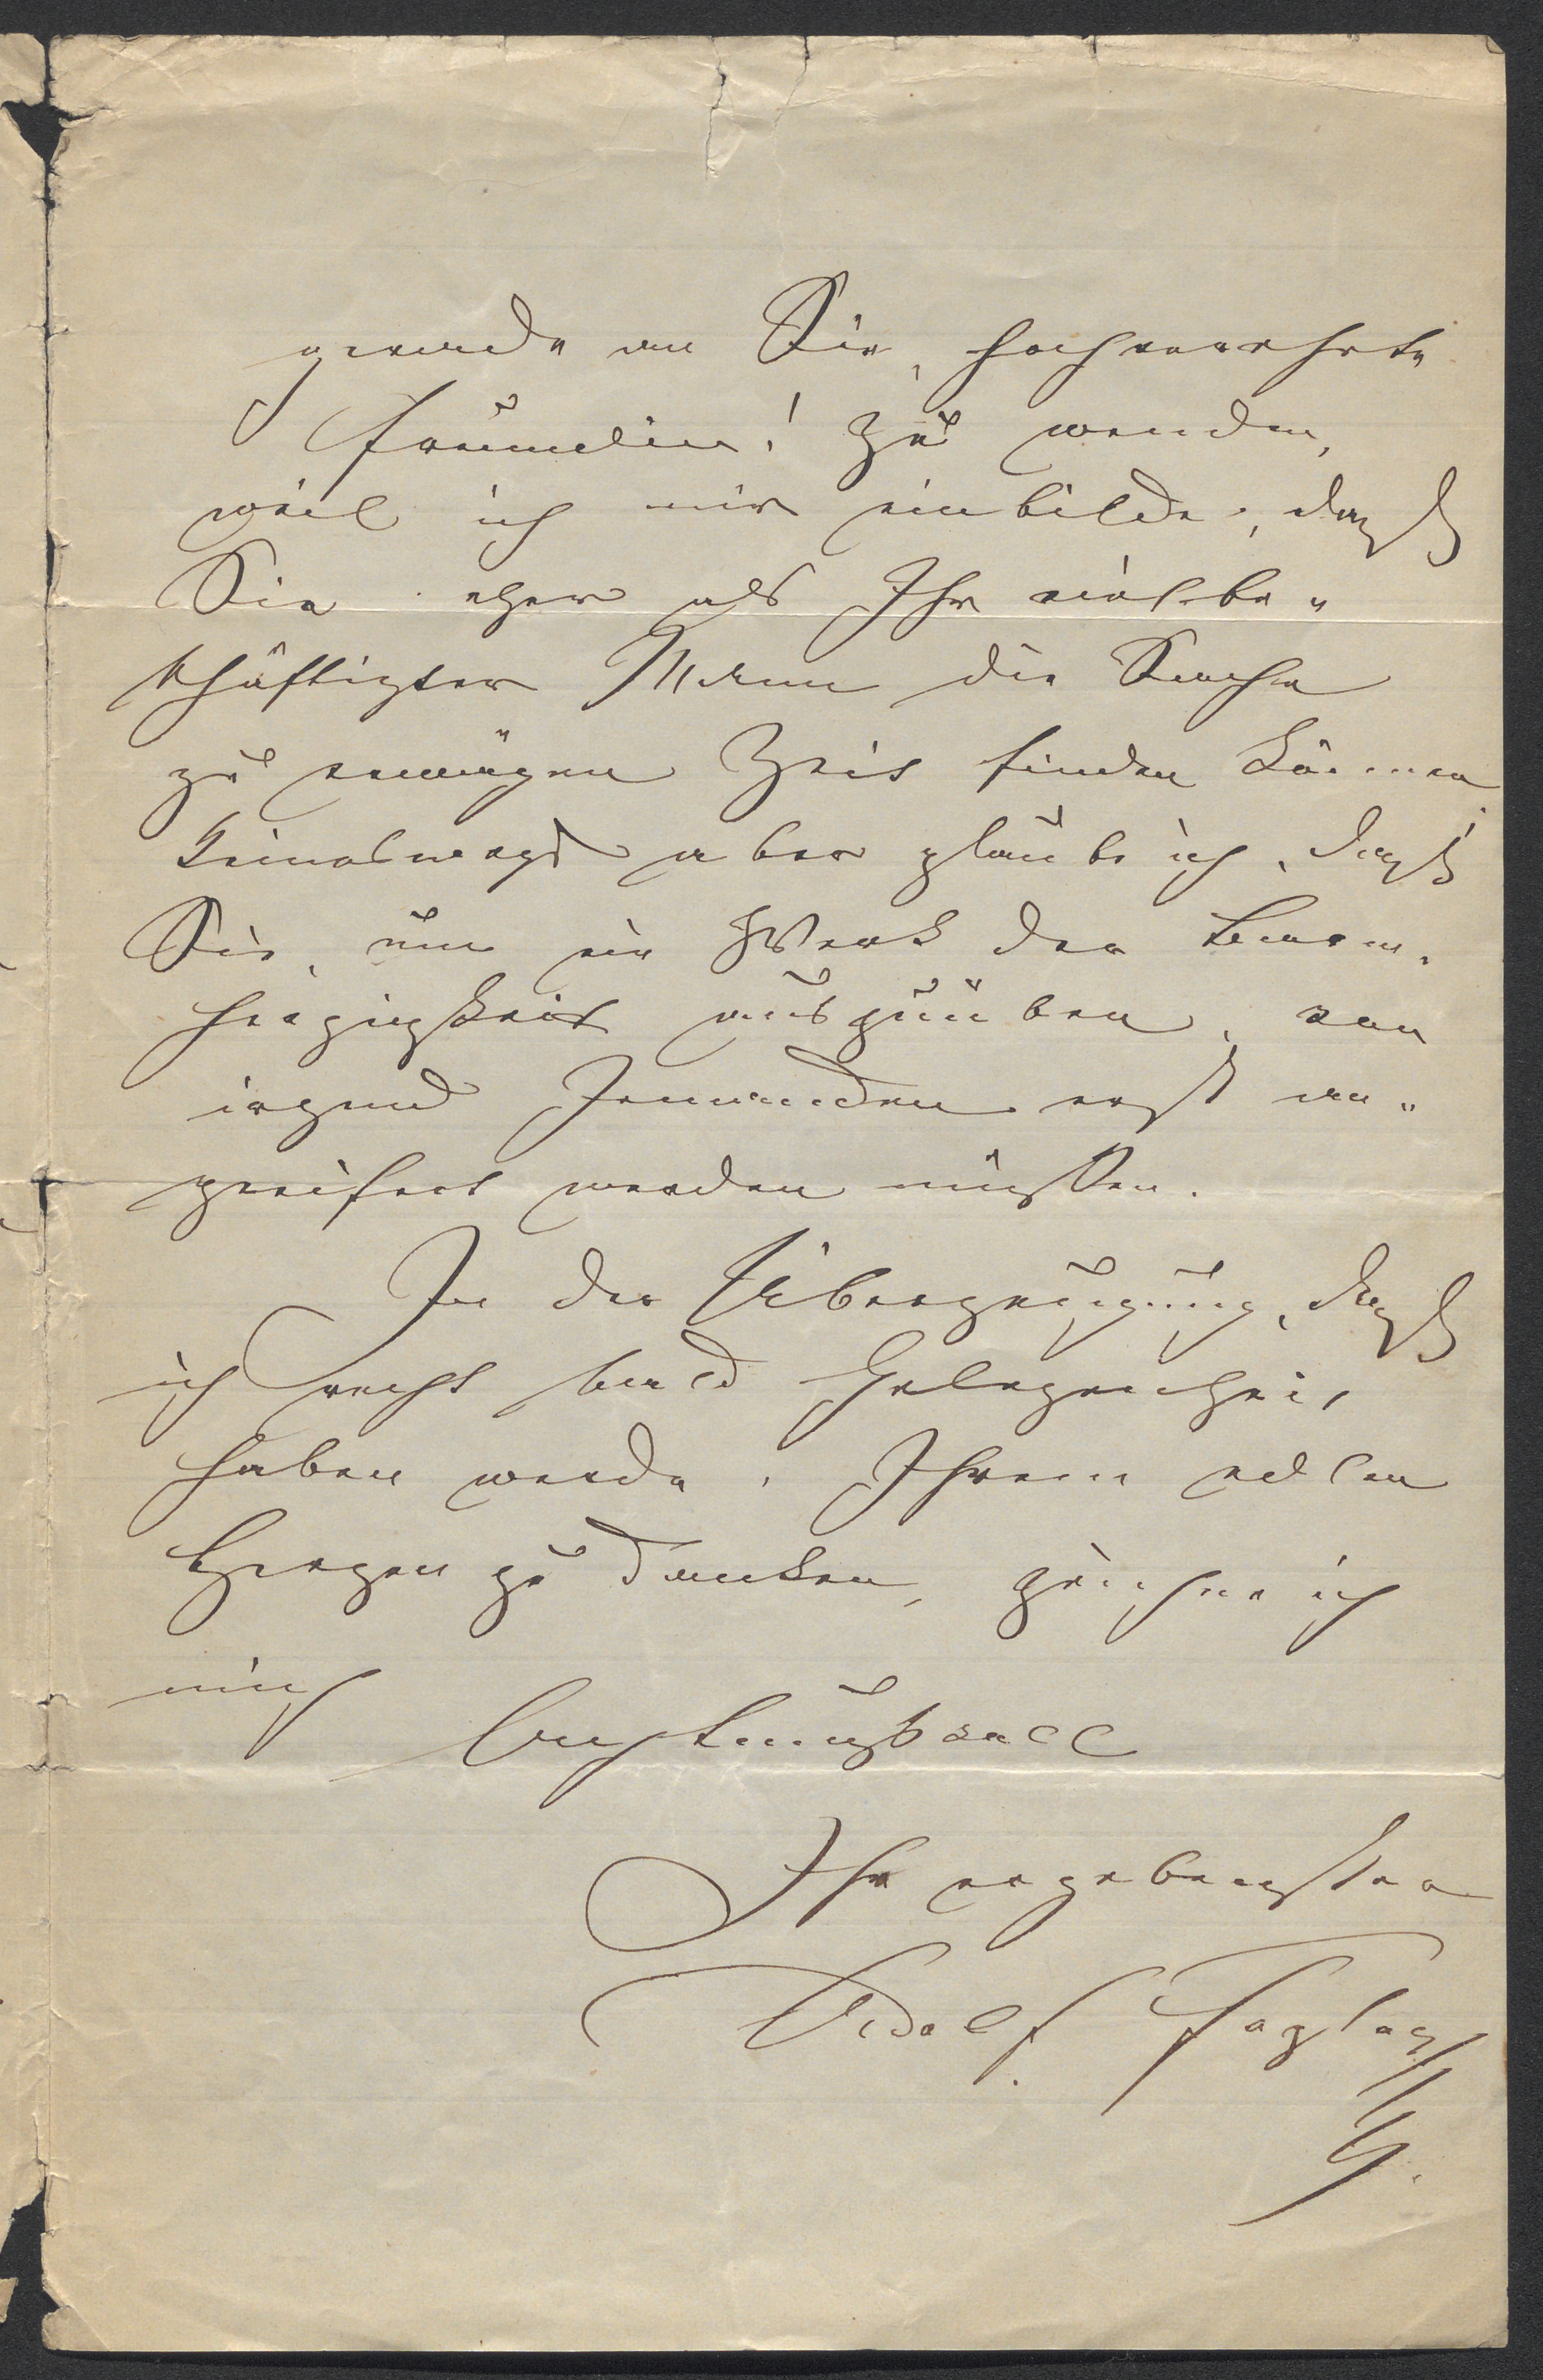 gerade an Sie, hochverehrte
Freundin! zu wenden,
weil ich mir einbilde, daß
Sie eher als Ihr vielbe-
schäftigter Mann die Sache
zu erwägen Zeit finden können,
keineswegs aber glaube ich, daß
Sie, um ein Werk der Barm-
herzigkeit auszuüben, von
irgend Jemanden erst an-
geeifert werden müssen.
In der Überzeugung, daß
ich recht bald Gelegenheit
haben werde, Ihrem edlen
Herzen zu danken, zeichne ich
mich
Achtungsvoll
Ihr ergebenster
Adolf